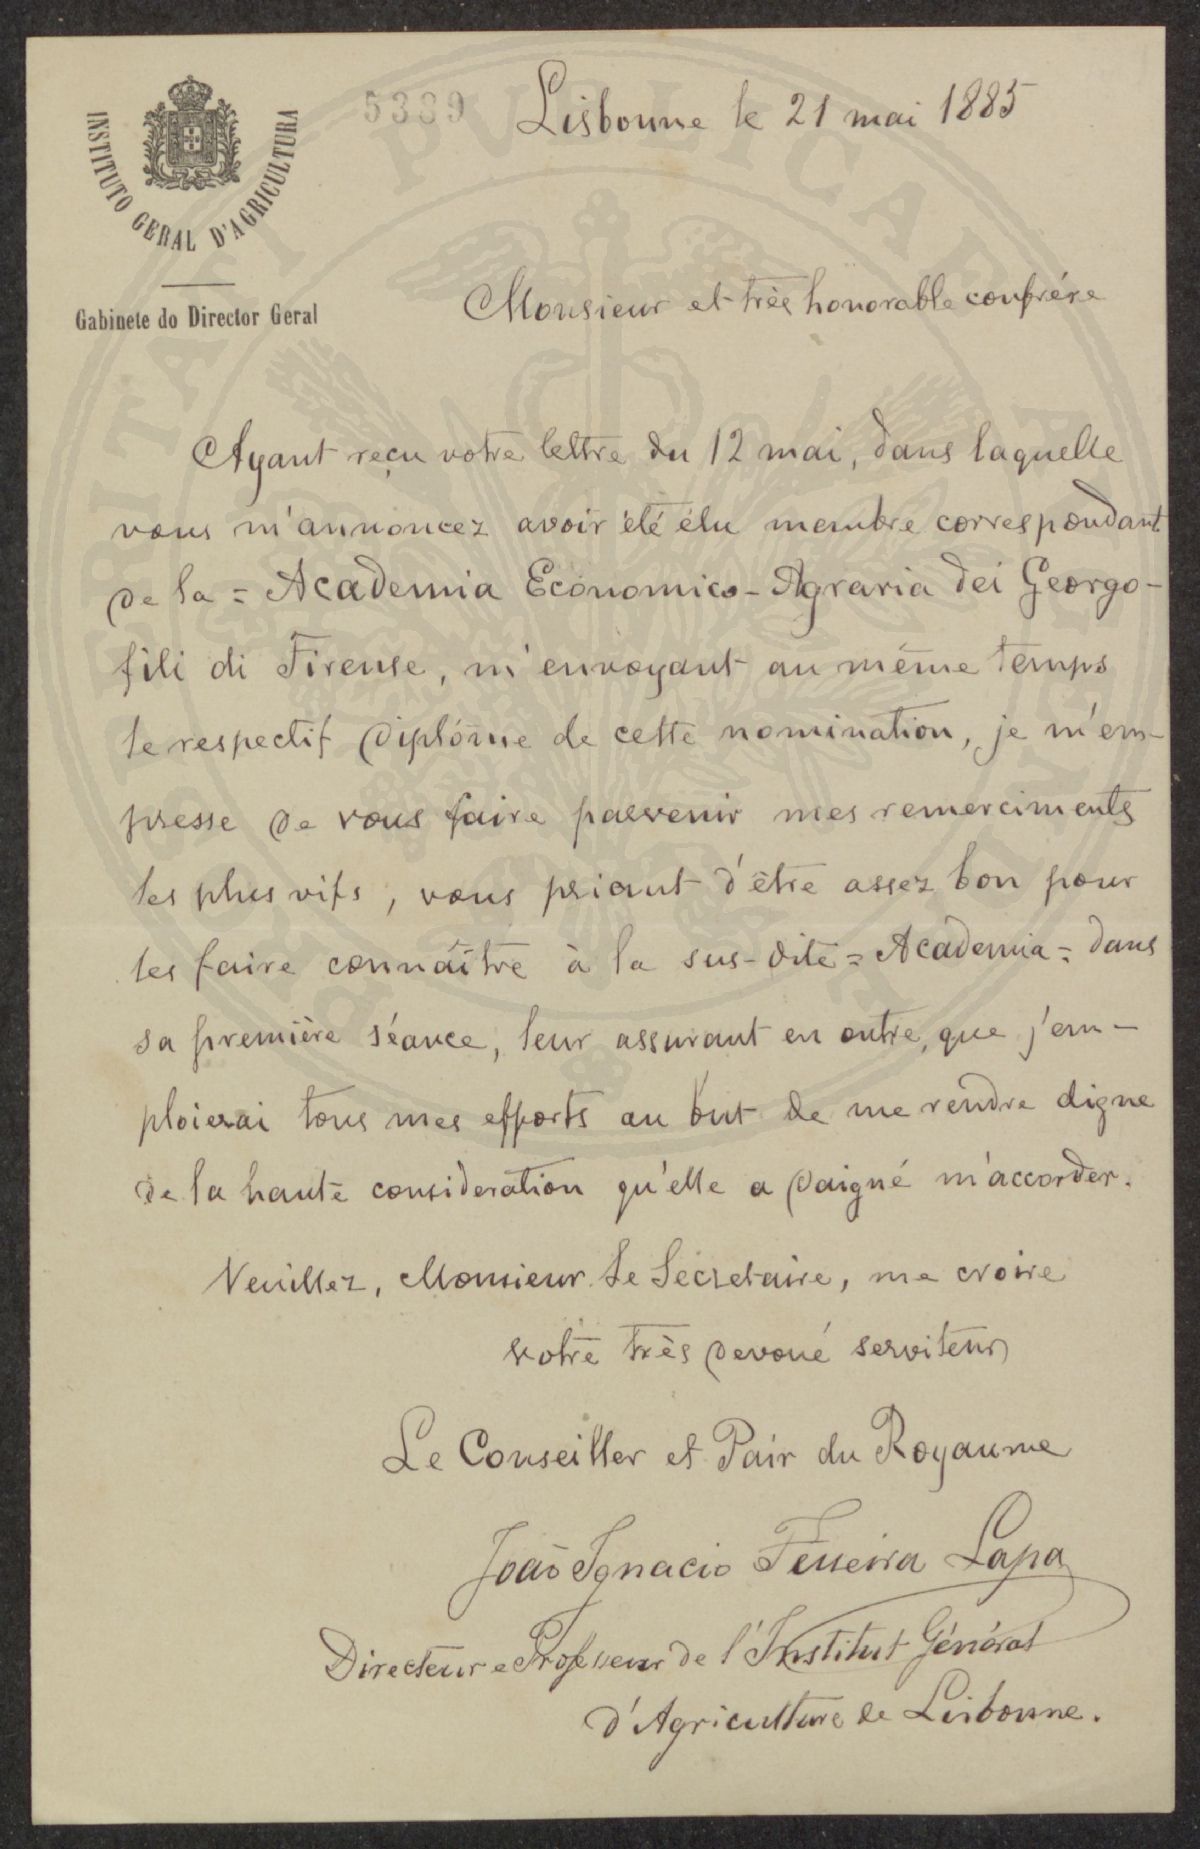 INSTITUTO GERAL D'AGRICULTURA
Gabinete do Director Geral
5389
Lisbonne le 21 mai 1885
Monsieur et très honorable confrére
Ayant reçu votre lettre du 12 mai, dans laquelle
vous m'annoncez avoir été élu membre correspondant
de la = Academia Economico-Agraria dei Georgo-
fili di Firense, m'envoyant au même temps
le respectif diplóme de cette nomination, je m'em-
presse de vous faire parvenir mes remerciments
les plus vifs, vous priant d'être assez bon pour
les faire connaître à la sus-dite = Academia = dans
sa première séance, leur assurant en outre, que j'em-
ploierai tous mes efforts au but de me rendre digne
de la haute consideration qu'elle a daigné m'accorder.
Veuillez, Monsieur le Secretaire, me croire
votre très devoué serviteur
Le Conseiller et Pair du Royaume
João Ignacio Ferreira Lapa
Directeur e Professeur de l'Institut Général
d'Agriculture de Lisbonne.